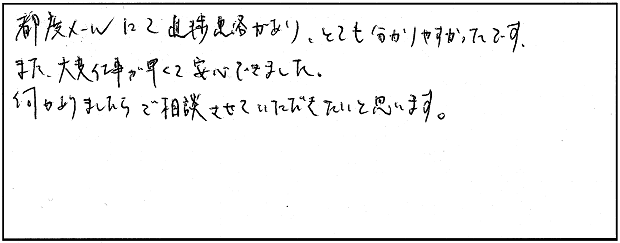 都度メールにて進捗連絡があり、とても分かりやすかったです。
また、大変仕事が早くて安心できました。
何かありましたらご相談させていただきたいと思います。